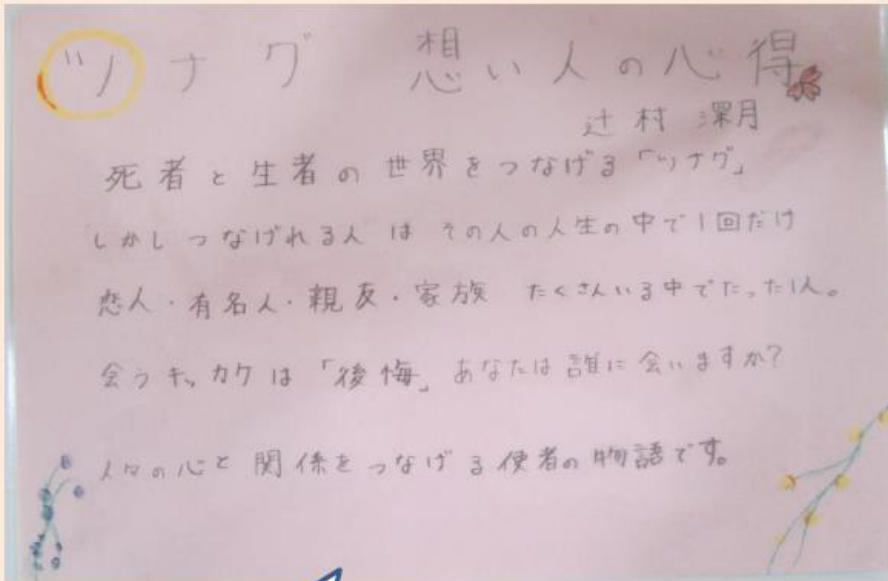 ツナグ 想い人の心得
辻村 深月
死者と生者の世界をつなげる「ツナグ」
しかしつなげれる人は その人の人生の中で1回だけ
恋人・有名人・親友・家族 たくさんいる中でたった1人。
会うキッカケは「後悔」あなたは誰に会いますか?
人々の心と関係をつなげる使者の物語です。